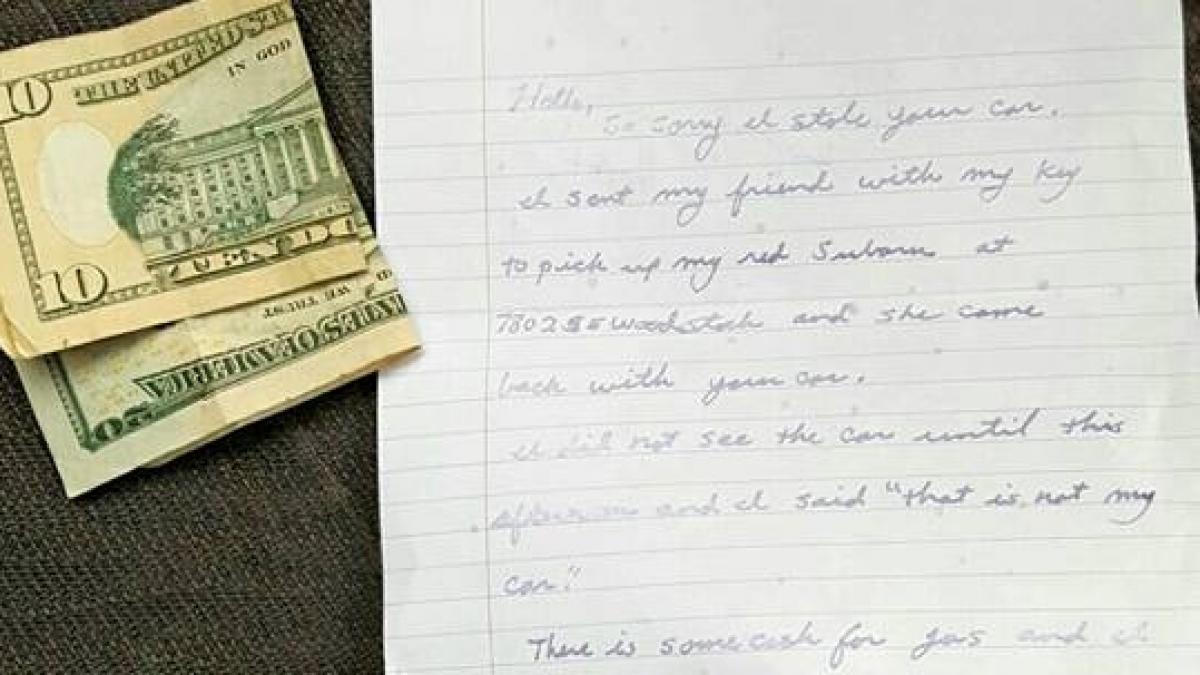 10
THE UNITED ST
IN GOD
10
WE TRUST
UNITED STATES OF AMERICA
20
Hello,
So sorry I stole your car.
I sent my friend with my key
to pick up my red Subaru at
7802 SE Woodstock and she came
back with your car.
I did not see the car until this
afternoon and I said "that is not my
car."
There is some cash for gas and I